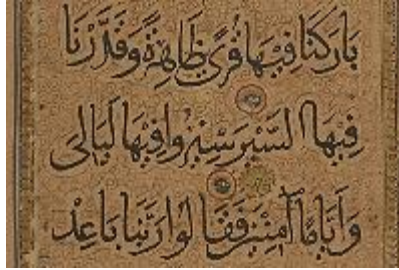 بَارَكْنَا فِيهَا قُرًى ظَاهِرَةً وَقَدَّرْنَا
فِيهَا السَّيْرَ سِيرُوا فِيهَا لَيَالِىَ
وَأَيَّامًا آمِنِينَ فَقَالُوا رَبَّنَا بَاعِدْ